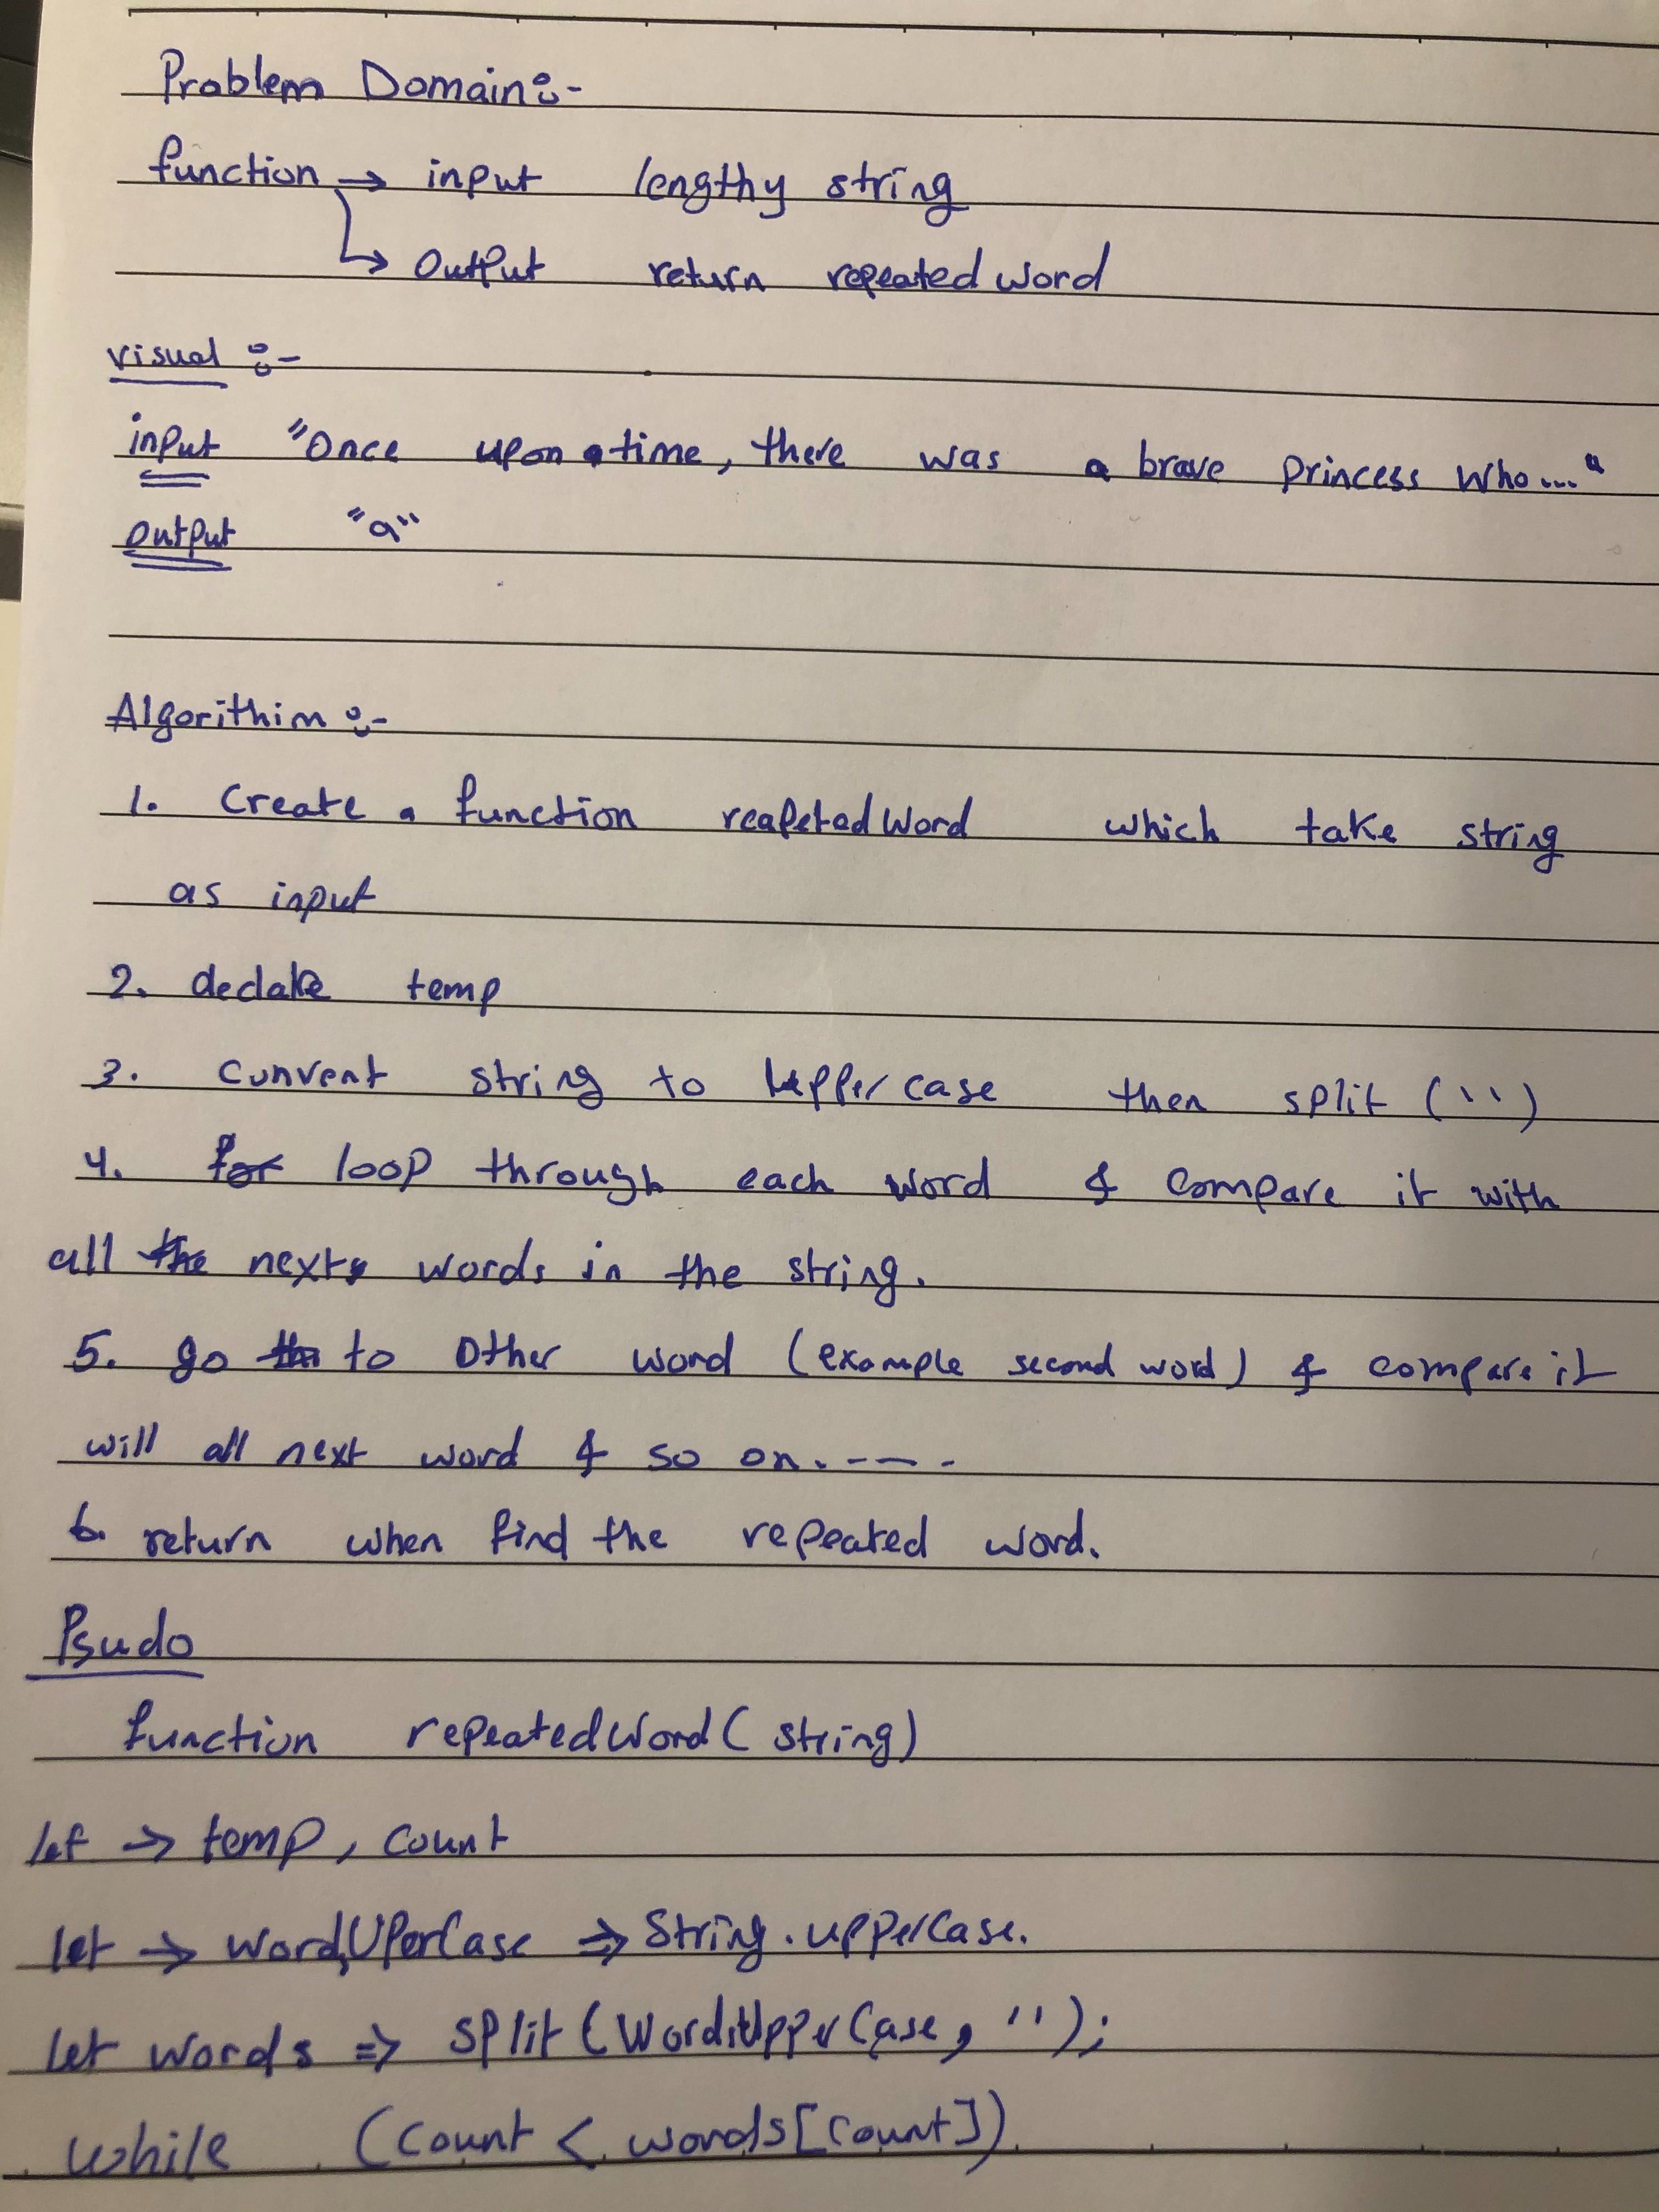 Problem Domain:-
function → input lengthy string
→ Output return repeated word
visual :-
input "Once upon a time, there was a brave princess who..."
output "a"
Algorithim :-
1. Create a function reapetedWord which take string
as input
2. declare temp
3. convert string to Upper case then split ('')
4. for loop through each word & compare it with
all the next words in the string.
5. go to other word (example second word) & compare it
will all next word & so on. ---
6. return when find the repeated word.
Psudo
function repeatedWord ( string)
let → temp, count
let → wordsUperCase ⇒ String.upperCase.
let words ⇒ split (WordsUpperCase, '');
while (count < words[count])